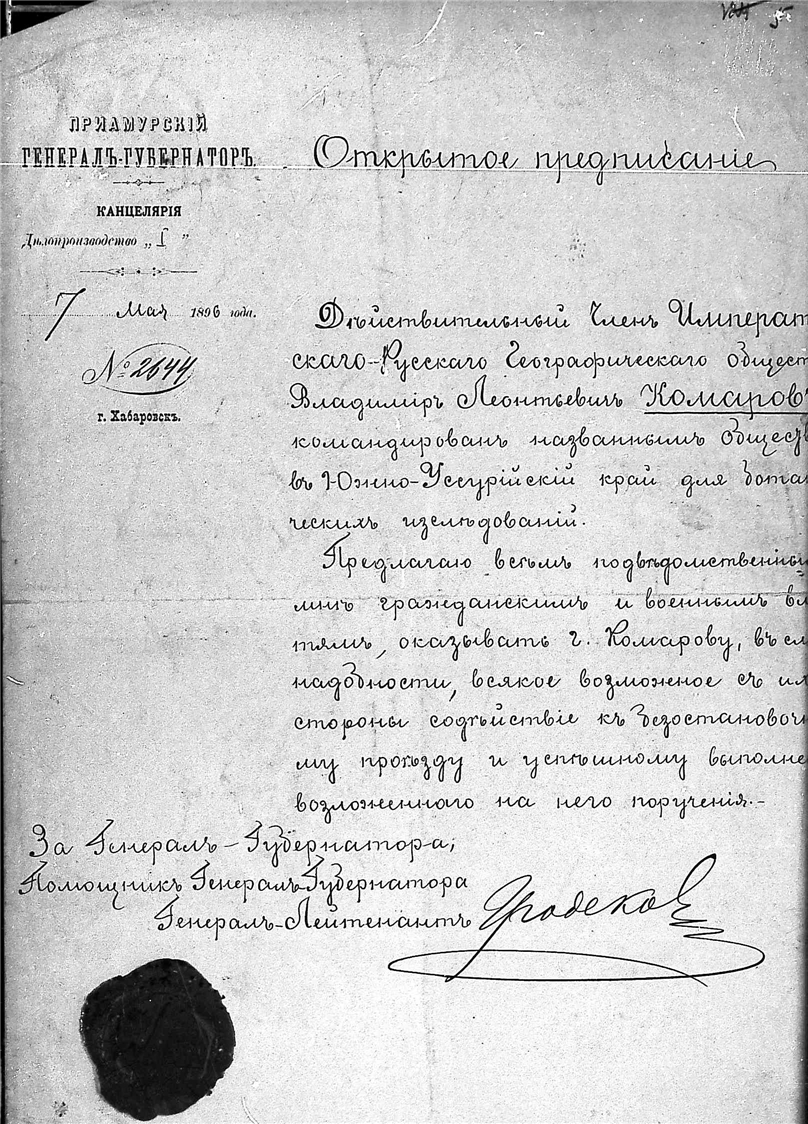 ПРІАМУРСКІЙ
ГЕНЕРАЛЪ-ГУБЕРНАТОРЪ.
КАНЦЕЛЯРІЯ
Дѣлопроизводство „I”
7 Мая 1896 года.
№ 2644
г. Хабаровскъ.
Открытое предписаніе
Дѣйствительный Членъ Императ
скаго-Русскаго Географическаго общест
Владиміръ Леонтьевичъ Комаровъ
командированъ названнымъ общест
въ Южно-Уссурійскій край для бота
ческихъ изслѣдованій.
Предлагаю всѣмъ подвѣдомственны
мнѣ гражданскимъ и военнымъ вла
тямъ, оказывать г. Комарову, въ сл
надобности, всякое возможное съ их
стороны содѣйствіе къ безостановоч
му проѣзду и успѣшному выполне
возложеннаго на него порученія.-
За Генералъ-Губернатора,
Помощникъ Генералъ-Губернатора
Генералъ-Лейтенантъ Гродековъ